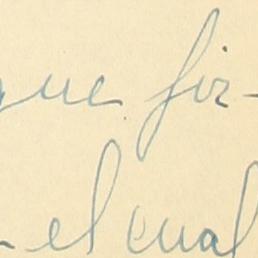 que fir-
el cual